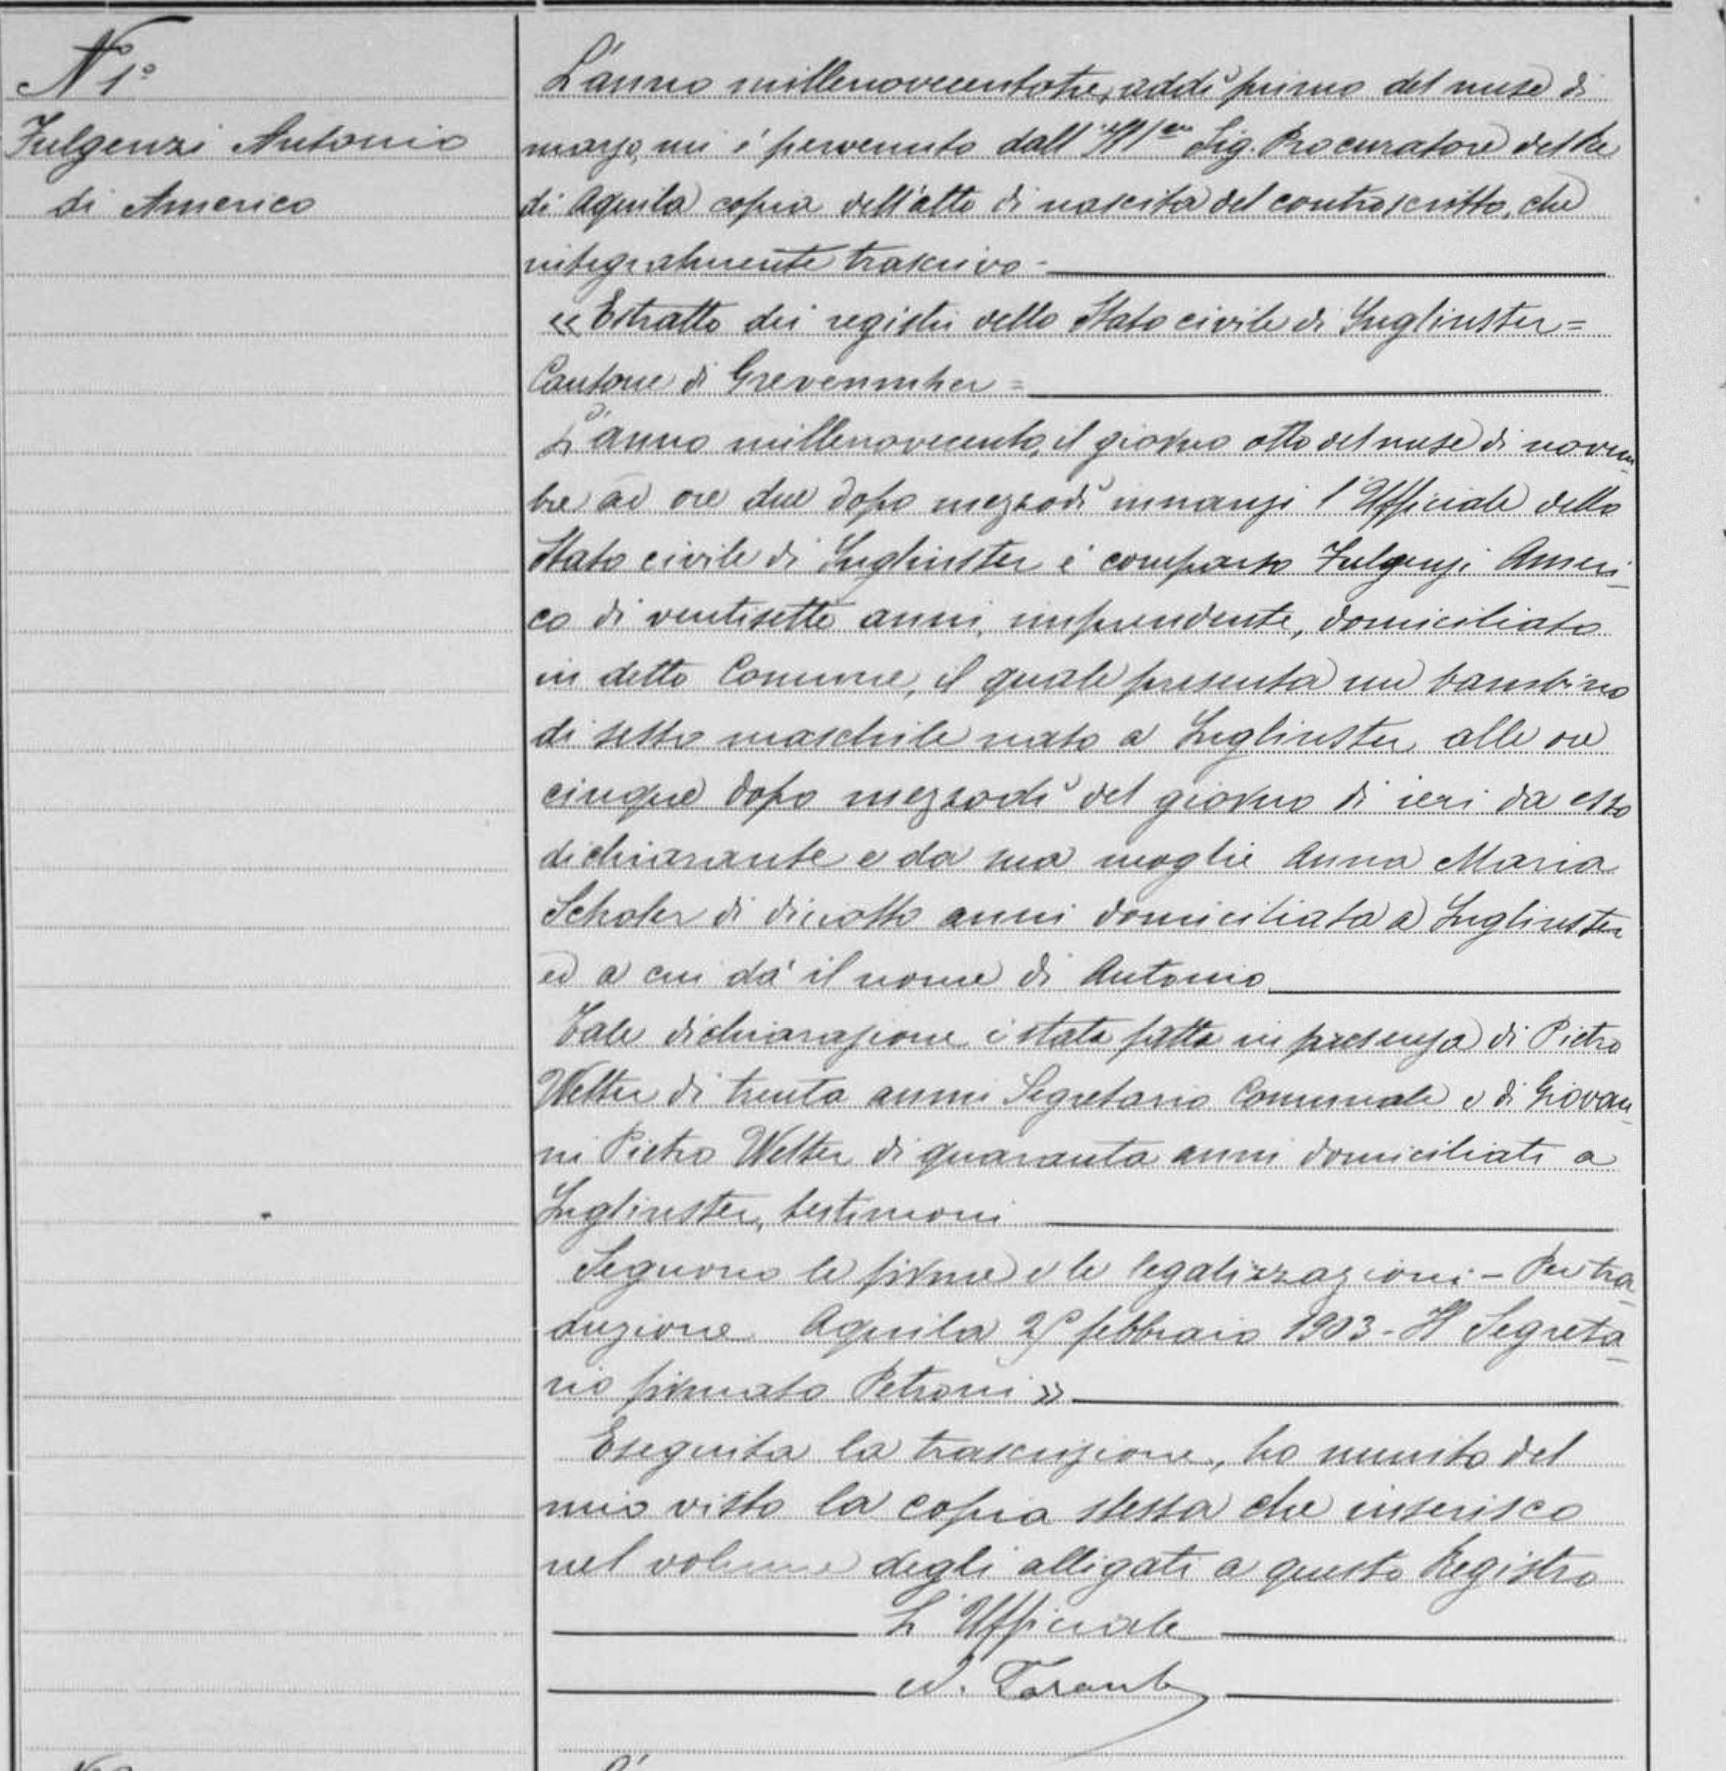 N 1°
Fulgenzi Antonio
di Americo
L'anno millenovecentotre, addì primo del mese di
marzo, mi è pervenuto dall'Ill.mo Sig. Procuratore del Re
di Aquila copia dell'atto di nascita del controscritto, che
integralmente trascrivo -
« Estratto dei registri dello Stato civile di Juglinster =
Cantone di Grevenmher =
L'anno millenovecento, il giorno otto del mese di novem
bre ad ore due dopo mezzodì innanzi l'Ufficiale dello
Stato civile di Juglinster è comparso Fulgenzi Ameri
co di ventisette anni, imprendente, domiciliato
in detto Comune, il quale presenta un bambino
di sesso maschile nato a Juglinster alle ore
cinque dopo mezzodì del giorno di ieri da esso
dichiarante e da sua moglie Anna Maria
Scholer di diciotto anni domiciliata a Juglinster
ed a cui dà il nome di Antonio
Tale dichiarazione è stata fatta in presenza di Pietro
Welter di trenta anni Segretario Comunale e di Giovan
ni Pietro Welter di quaranta anni domiciliati a
Juglinster, testimoni
Seguono le firme e le legalizzazioni - Per tra
duzione Aquila febbraio 1903 - Il Segreta
rio firmato Petroni »
Eseguita la trascrizione, ho munito del
mio visto la copia stessa che inserisco
nel volume degli alligati a questo Registro
L'Ufficiale